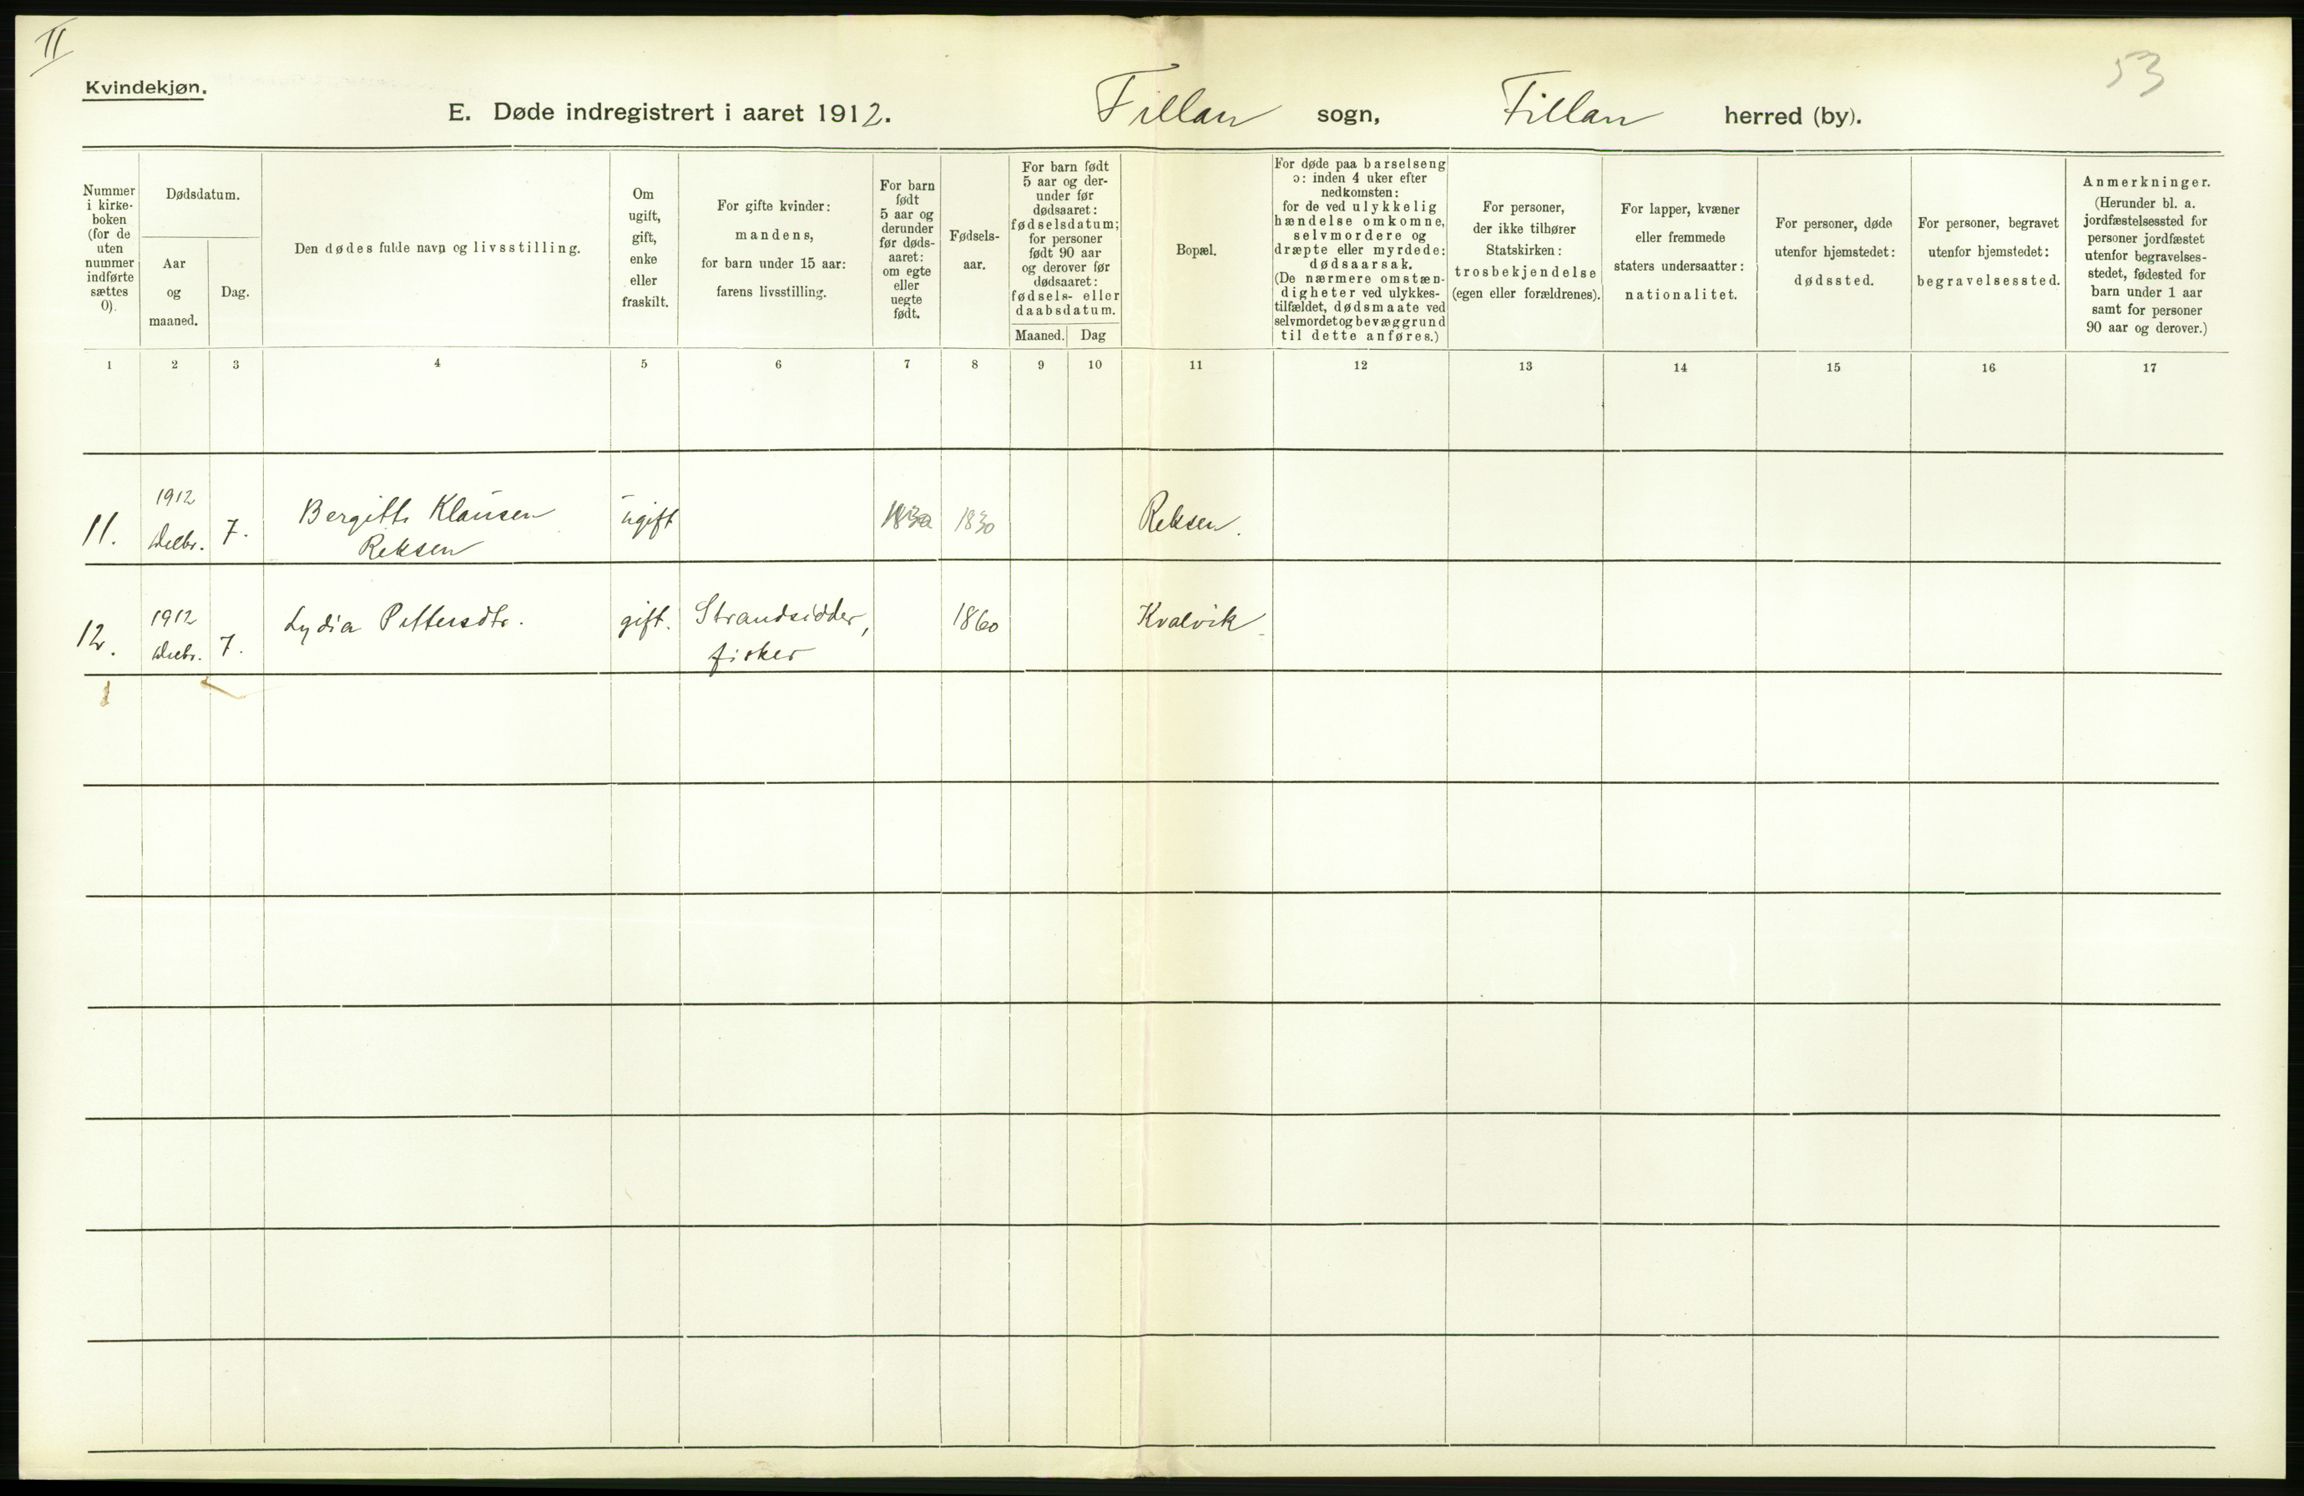 II
53
Kvindekjøn.
E. Døde indregistrert i aaret 1912. Fillan sogn, Fillan herred (by).
Nummer
i kirke-
boken
(for de
uten
nummer
indførte
sættes
0).
Dødsdatum.
Aar
og
maaned.
Dag.
Den dødes fulde navn og livsstilling.
Om
ugift,
gift,
enke
eller
fraskilt.
For gifte kvinder:
mandens,
for barn under 15 aar:
farens livsstilling.
For barn
født
5 aar og
derunder
før døds-
aaret:
om egte
eller
uegte
født.
Fødsels-
aar.
For barn født
5 aar og der-
under før
dødsaaret:
fødselsdatum;
for personer
født 90 aar
og derover før
dødsaaret:
fødsels- eller
daabsdatum.
Maaned.
Dag
Bopæl.
For døde paa barselseng
ɔ: inden 4 uker efter
nedkomsten:
for de ved ulykkelig
hændelse omkomne,
selvmordere og
dræpte eller myrdede:
dødsaarsak.
(De nærmere omstæn-
digheter ved ulykkes-
tilfældet, dødsmaate ved
selvmordet og bevæggrund
til dette anføres.)
For personer,
der ikke tilhører
Statskirken:
trosbekjendelse
(egen eller forældrenes).
For lapper, kvæner
eller fremmede
staters undersaatter:
nationalitet.
For personer, døde
utenfor hjemstedet:
dødssted.
For personer, begravet
utenfor hjemstedet:
begravelsessted.
Anmerkninger.
(Herunder bl. a.
jordfæstelsessted for
personer jordfæstet
utenfor begravelses-
stedet, fødested for
barn under 1 aar
samt for personer
90 aar og derover.)
1 2 3 4 5 6 7 8 9 10 11 12 13 14 15 16 17
1912
11. Decbr. 7. Bergitte Klausen ugift 1830 1830 Reksen.
Reksen
1912
12. Decbr. 7. Lydia Pettersdtr. gift. Strandsidder, 1860 Kvalvik
fisker